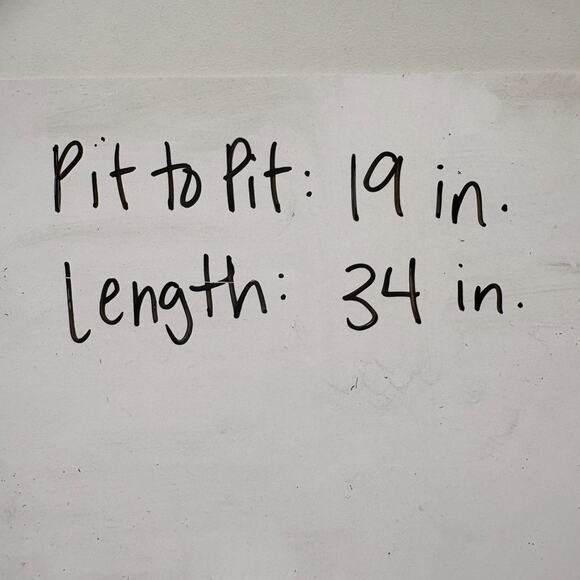 Pit to Pit: 19 in.
Length: 34 in.